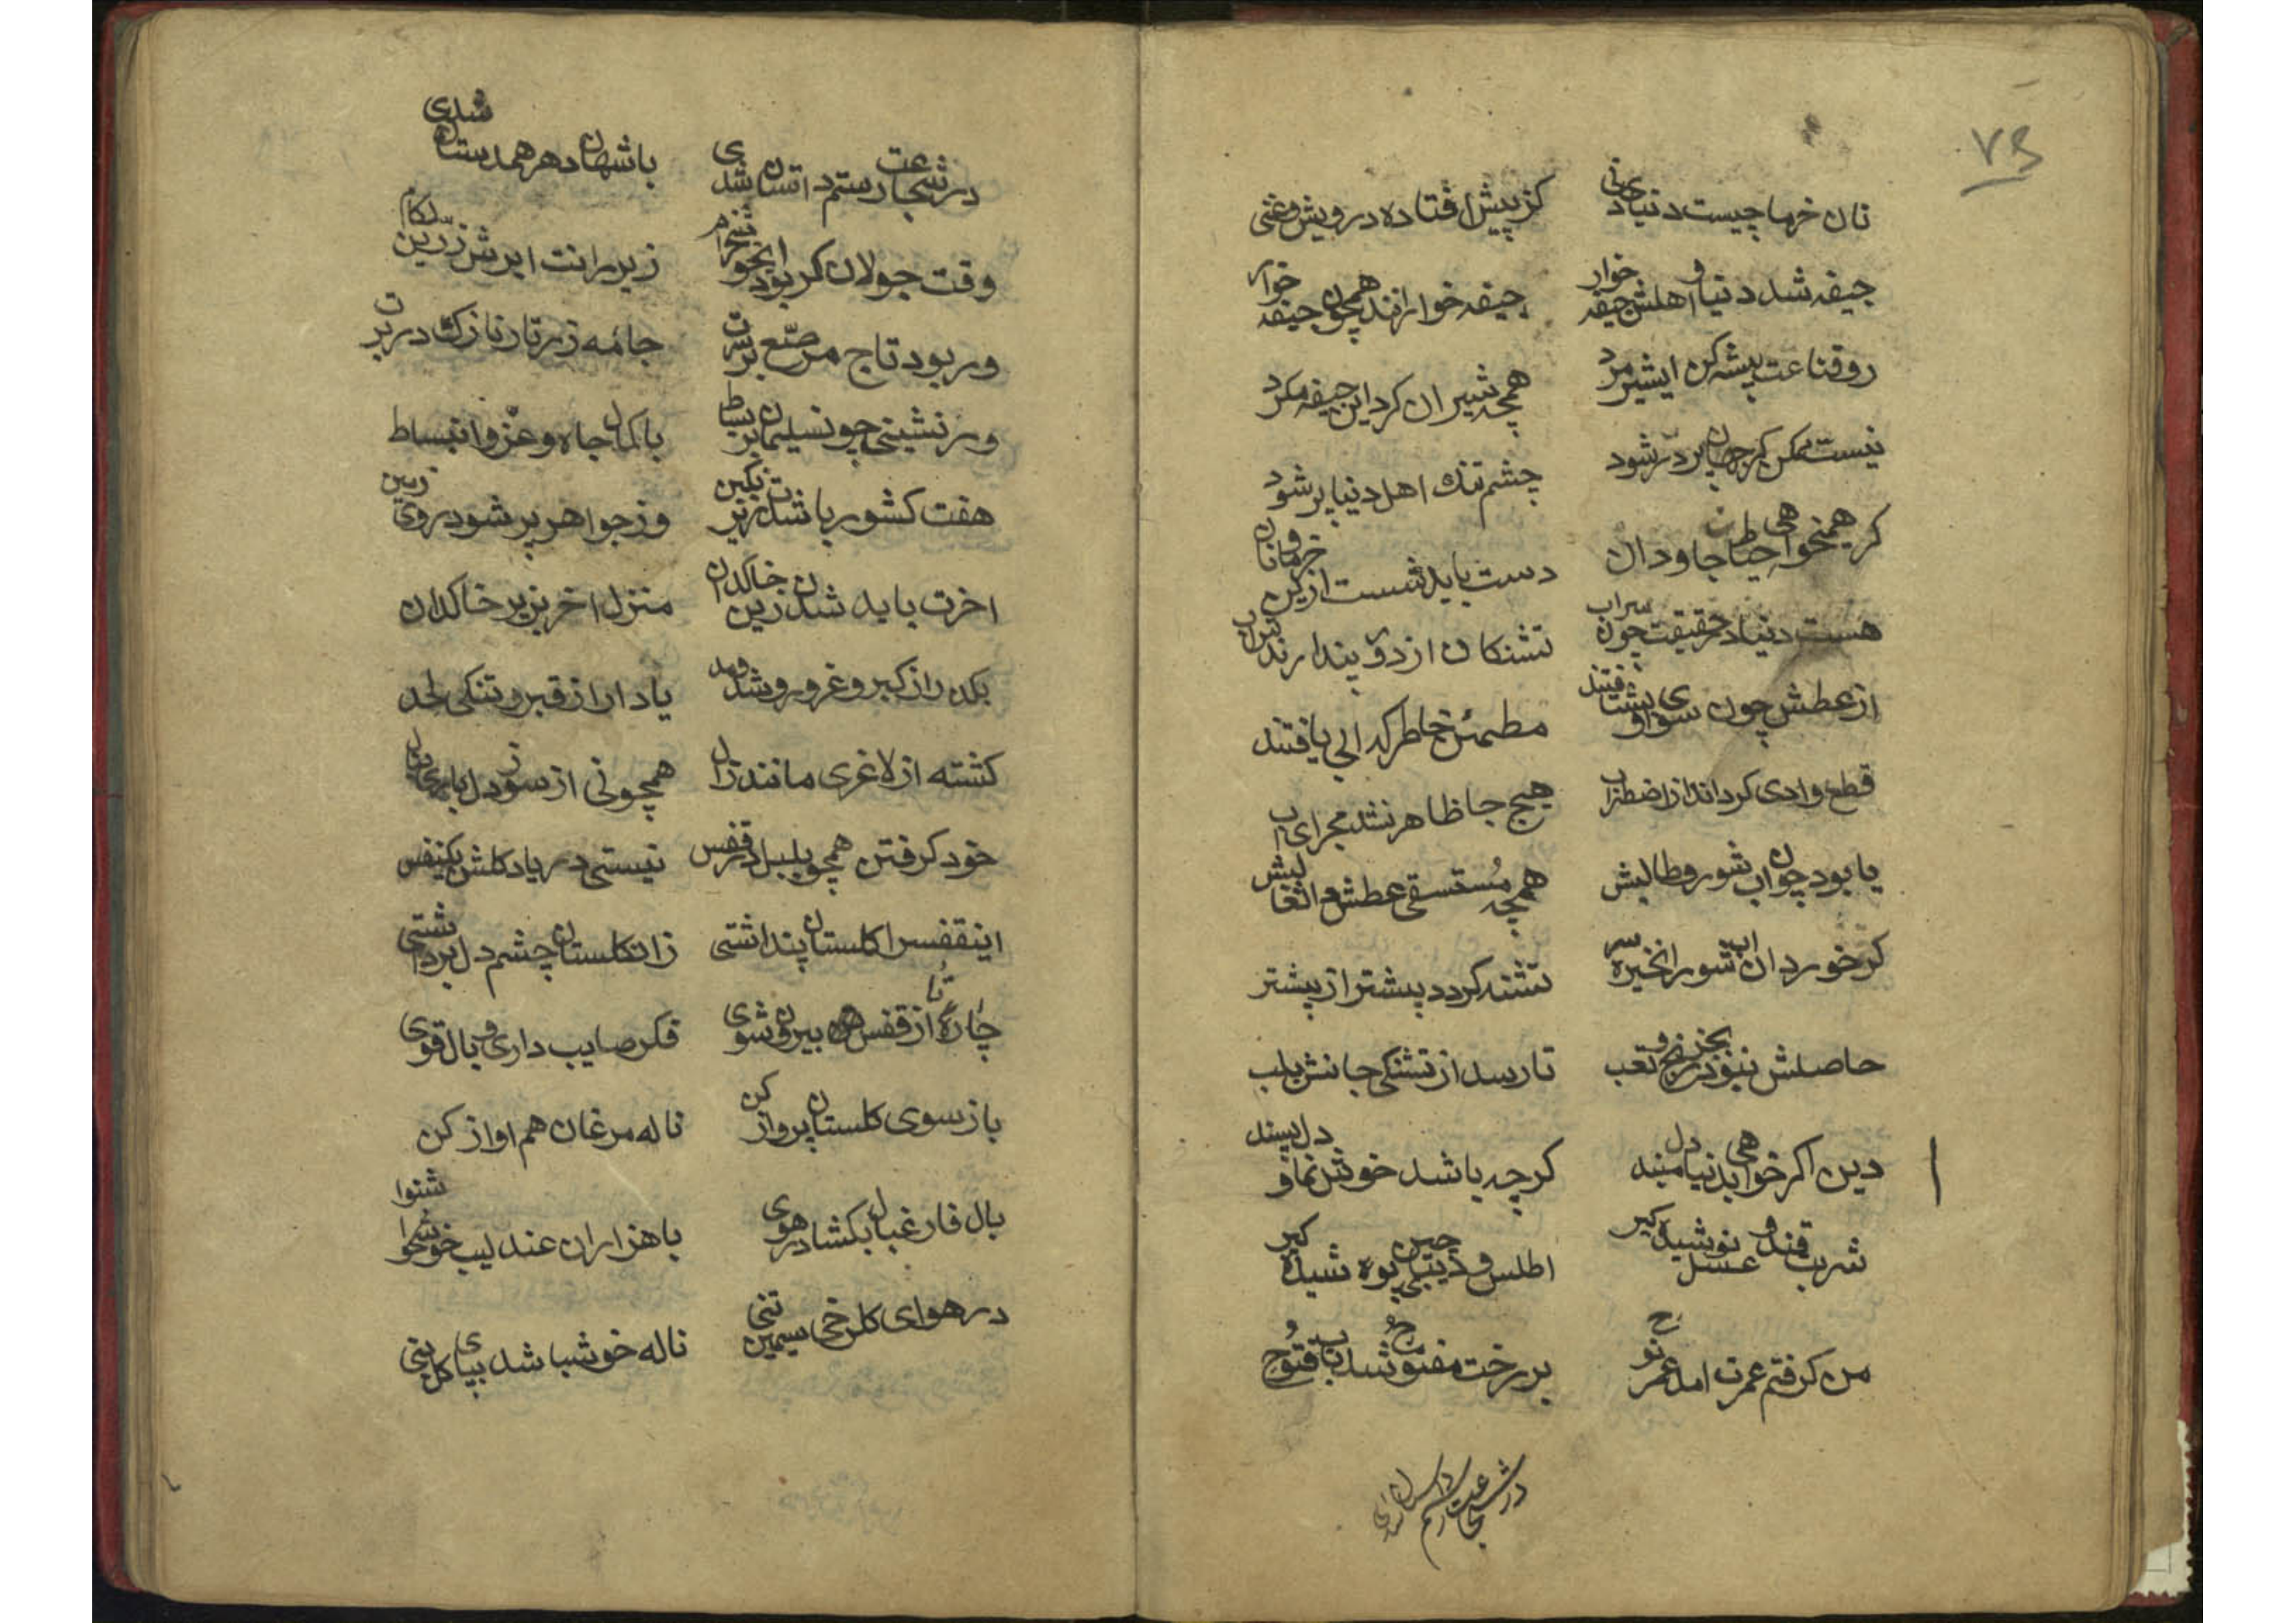 ۷۳
نان خرما چیست دنیای دنی کز پیش افتاده درویش و غنی
جیفه شد دنیا و اهلش جیفه خوار جیفه خوارانند همچون جیفه خوار
رو قناعت پیشه کن ایشیر مرد همچه شیران کرد این جیفه مکرد
نیست ممکن کر جهان پر در شود چشم تنك اهل دنیا پر شود
کر همیخواهی حیات جاودان دست باید شست ازین خرما و نان
هست دنیا در حقیقت چون سراب تشنکان از دور پندارند اب
از عطش چون سوی او بشتافتند مطمئن خاطر که ابی یافتند
قطع وادی کرداند از اضطراب هیچ جا ظاهر نشد مجرای اب
یا بود چون اب شور و طالبش همچه مستسقی عطش
کر خورد ان اب شور انخیره سر تشنه کردد پیشتر از پیشتر
حاصلش نبود بجز رنج و تعب تا رسد از تشنکی جانش بلب
دین اکر خواهی بدنیا دل مبند کرچه باشد خوش نما و دل پسند
شربت قند و عسل نوشیده کیر اطلس و دیبای چین پوشیده کیر
من کرفتم عمرت امد عمر نوح بر رخت مفتوح شد باب فتوح
در شجاعت رستم داستان شدی
در شجاعت رستم داستان شدی با شهان دهر همدستان شدی
وقت جولان کر بود ابخوشخرام زیر رانت ابرش زرین لکام
ور بود تاج مرصّع بر سرت جامٔه زرتار نازك در برت
ور نشینی چو نسلیمان بر بساط با کمال جاه و عزّ و انبساط
هفت کشور باشدت زیر نکین وز جواهر پر شود روی زمین
اخرت باید شدن زین خاکدان منزل اخر بزیر خاکدان
بکذر از کبر و غرور و شد ومد یاد دار از قبر و تنکی لحد
کشته از لاغری مانند نال همچو نی از سوز دل
خود کرفتن همچو بلبل در قفس نیستی در یاد کلشن یکنفس
اینقفسرا کلستان پنداشتی زانکلستان چشم دل برداشتی
چارهٔ تا از قفس بیرون شوی فکر صایب داری و بال قوی
باز سوی کلستان پرواز کن ناله مرغان هم اواز کن
بال فارغبال بکشا در هوی با هزاران عندلیب خوشنوا
در هوای کلرخی سیمین تنی ناله خوشباشد بیای کلبنی